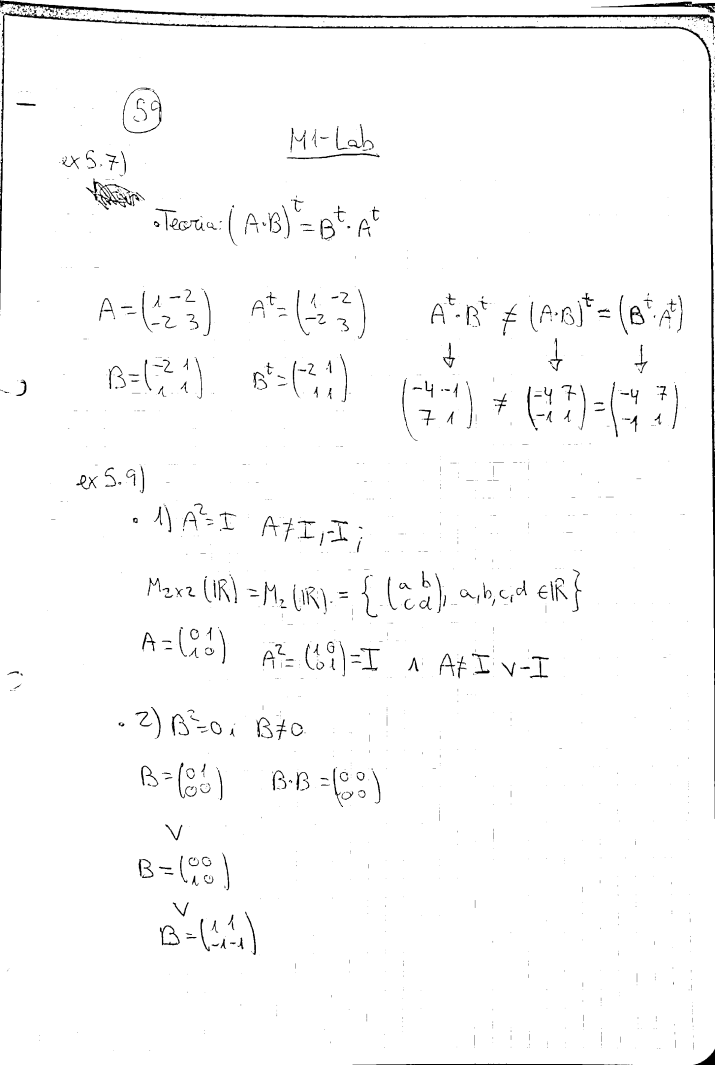 59
M1-Lab
ex 5.7)
• Teoria: (A·B)^t = B^t · A^t
A = (1 -2 / -2 3) A^t = (1 -2 / -2 3) A^t · B^t ≠ (A·B)^t = (B^t · A^t)
↓ ↓ ↓
B = (-2 1 / 1 1) B^t = (-2 1 / 1 1) (-4 -1 / 7 1) ≠ (-4 7 / -1 1) = (-4 7 / -1 1)
ex 5.9)
• 1) A² = I A ≠ I, -I ;
M2x2 (ℝ) = M2 (ℝ) = { (a b / c d), a,b,c,d ∈ ℝ }
A = (0 1 / 1 0) A² = (1 0 / 0 1) = I ∧ A ≠ I ∨ -I
• 2) B² = 0 ; B ≠ 0
B = (0 1 / 0 0) B·B = (0 0 / 0 0)
∨
B = (0 0 / 1 0)
∨
B = (1 1 / -1 -1)